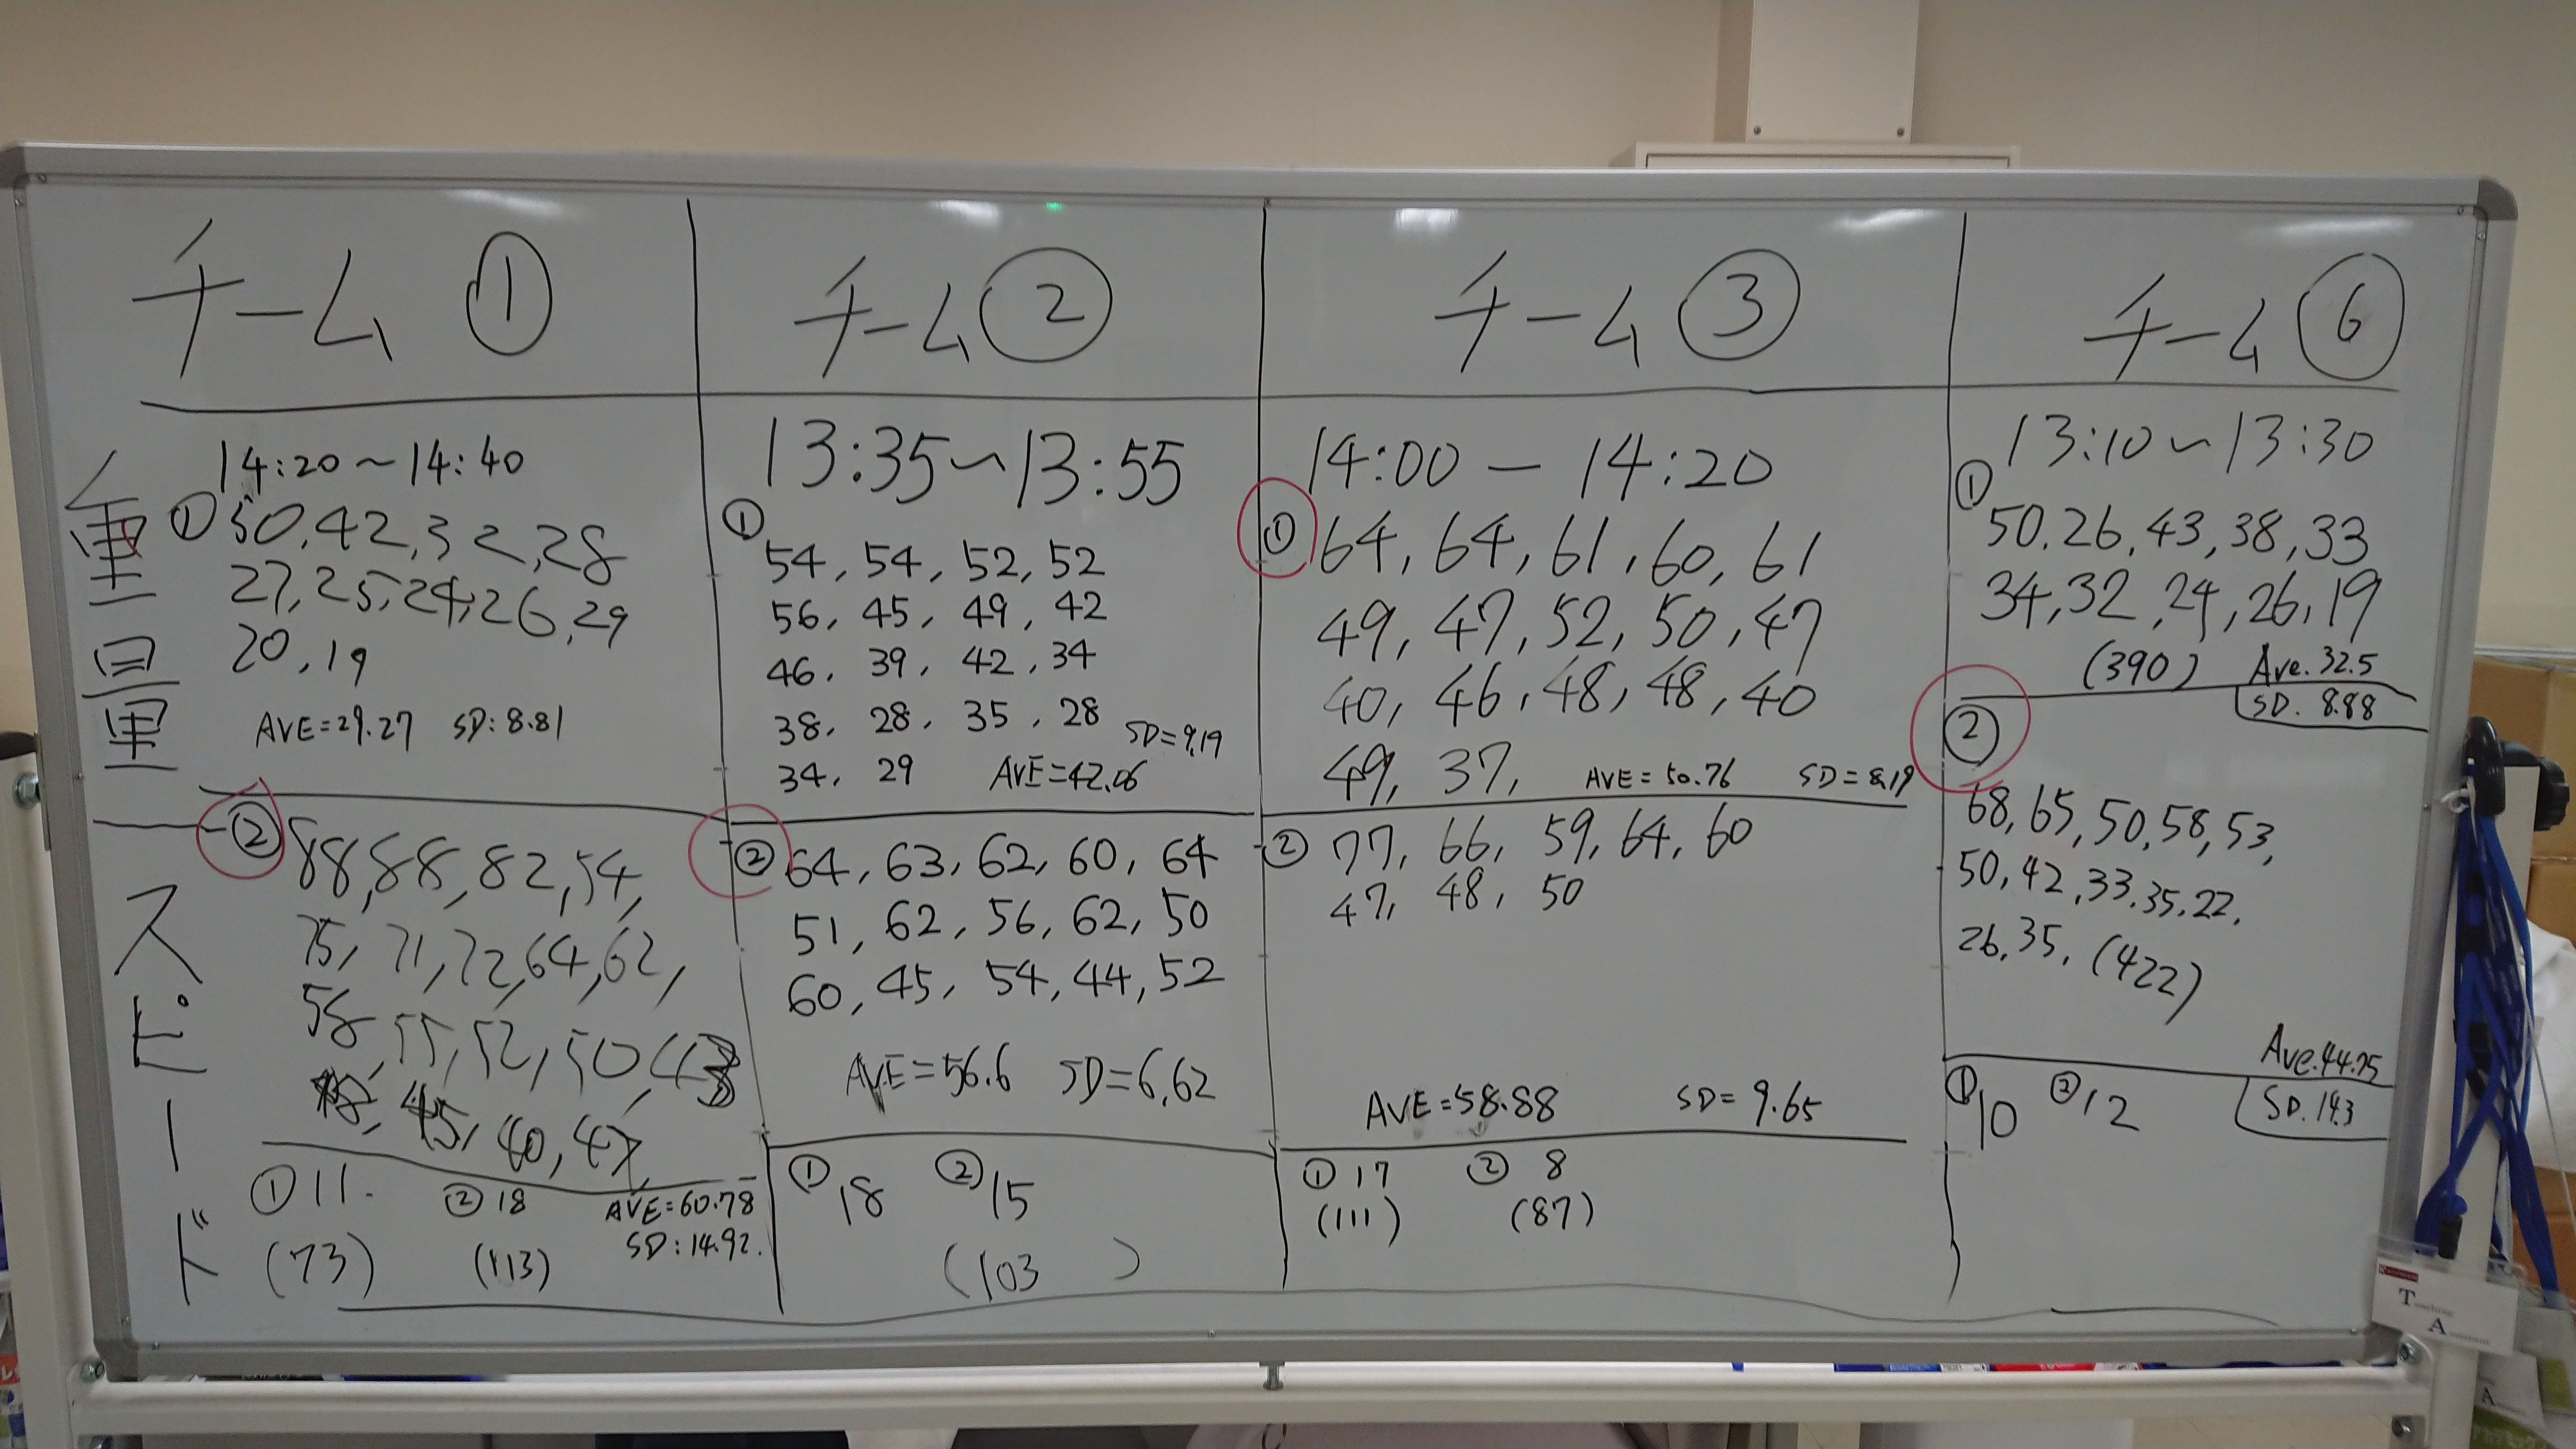 チーム ①
チーム ②
チーム ③
チーム ⑥
重量
スピード
14:20～14:40
① 50, 42, 32, 28
27, 25, 24, 26, 29
20, 19
AVE=29.27 SD: 8.81
② 88, 88, 82, 54,
75, 71, 72, 64, 62,
58, 55, 52, 50, 43
45, 40, 47,
① 11. ② 18 AVE=60.78
(73) (113) SD: 14.92.
13:35～13:55
①
54, 54, 52, 52
56, 45, 49, 42
46, 39, 42, 34
38, 28, 35, 28 SD=9.19
34, 29 AVE=42.06
② 64, 63, 62, 60, 64
51, 62, 56, 62, 50
60, 45, 54, 44, 52
AVE=56.6 SD=6.62
① 18 ② 15
(103 )
14:00 — 14:20
① 64, 64, 61, 60, 61
49, 47, 52, 50, 47
40, 46, 48, 48, 40
49, 37, AVE=50.76 SD=8.19
② 77, 66, 59, 64, 60
47, 48, 50
AVE=58.88 SD=9.65
① 17 ② 8
(111) (87)
13:10～13:30
①
50. 26, 43, 38, 33
34, 32, 24, 26, 19
(390) Ave. 32.5
SD. 8.88
②
68, 65, 50, 58, 53,
50, 42, 33, 35, 22,
26, 35, (422)
Ave. 44.75
SD. 14.3
① 10 ② 12
Teaching
Assistant